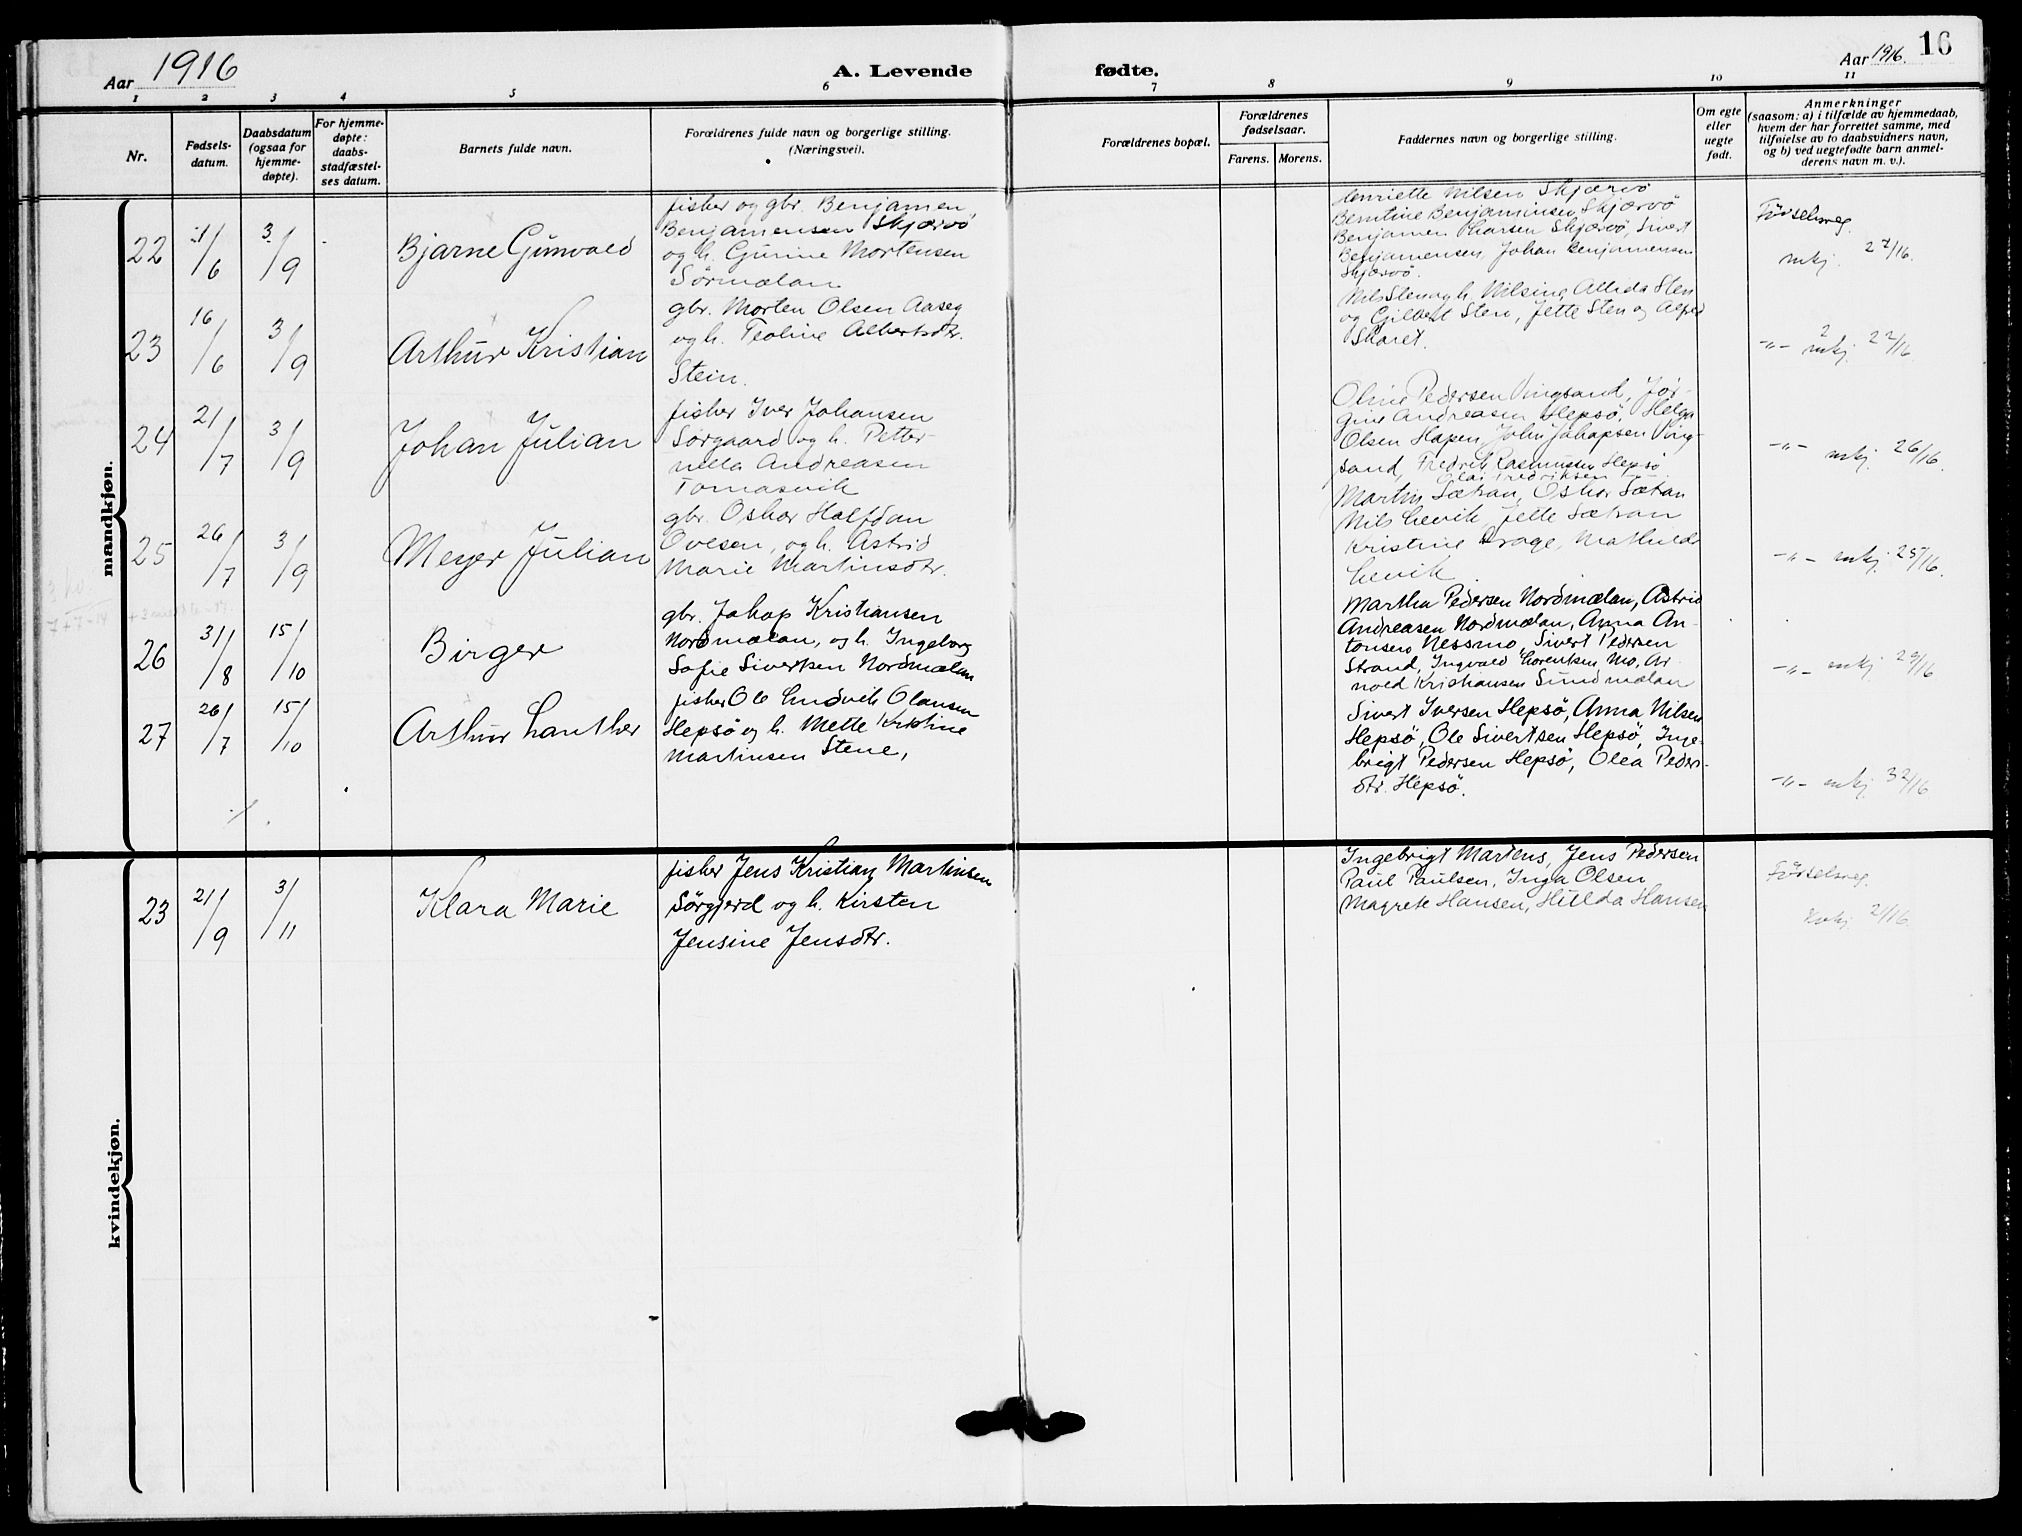 Aar 1916
A. Levende fødte.
Aar 1916.
16
1 2 3 4 5 6 7 8 9 10 11
Nr.
Fødsels-
datum.
Daabsdatum
(ogsaa for
hjemme-
døpte).
For hjemme-
døpte:
daabs-
stadfæstel-
ses datum.
Barnets fulde navn.
Forældrenes fulde navn og borgerlige stilling.
(Næringsvei).
Forældrenes bopæl.
Forældrenes
fødselsaar.
Farens. Morens.
Faddernes navn og borgerlige stilling.
Om egte
eller
uegte
født.
Anmerkninger
(saasom: a) i tilfælde av hjemmedaab,
hvem der har forrettet samme, med
tilføielse av to daabsvidners navn,
og b) ved uegtefødte barn anmel-
derens navn m. v.).
mandkjøn.
22
1/6
3/9
Bjarne Gunvald
fisher og gbr. Benjamen
Benjamensen Skjærvö
og h. Gurine Mortensen
Sörmælan
Henriette Nilsen Skjærvö
Berntine Benjaminsen, Skjærvö
Benjamen Skjærvö, Sivert
Benjamensen, Johan Benjamensen
Skjærvö.
Födselsreg.
mkj. 27/16.
23
16/6
3/9
Arthur Kristian
gbr. Morten Olsen Aaseg
og h. Teoline Albertsdtr.
Stein.
Nils Sten og h. Nilsine, Allida Sten
og Gilbert Sten, Jette Sten og Alfred
Skaret.
-"- mkj. 22/16
24
21/7
3/9
Johan Julian
fisher Iver Johansen
Sörgaard og h. Petter-
nella Andreasen
Tomasvik
Oline Pedersen Vingsand, Jör-
gine Andreasen Hepsö, Helga
Olsen Hapen, John Johansen Ving-
sand, Fredrik Rasmussen Hepsö
Olai Fredriksen
-"- mkj. 26/16.
25
26/7
3/9
Meyer Julian
gbr. Oskar Halfdan
Ovesen, og h. Astrid
Marie Martinsdtr.
Martin Sætran, Oskar Sætan
Nils Levik, Jelle Sætran
Kristine Drage, Mathilde
Levik
-"- mkj. 25/16.
26
31/8
15/10
Birger
gbr. Johan Kristiansen
Nordmælan, og h. Ingeborg
Sofie Sivertsen Nordmælan
Martha Pedersen Nordmælan, Astrid
Andreasen Nordmælan, Anna An-
tonsen Nessmo, Sivert Pedersen
Strand, Ingvald Lorentsen Mo, Ar-
nold Kristiansen Sundmælan
-"- mkj. 29/16
27
26/7
15/10
Arthur Lauther
fisher Ole Ludvik Olausen
Hepsö og h. Mette Kristine
Martinsen Stene,
Sivert Iversen Hepsö, Anna Nilsen
Hepsö, Ole Sivertsen Hepsö, Inge-
brigt Pedersen Hepsö, Olea Peders-
dtr. Hepsö.
-"- mkj. 32/16
kvindekjøn.
23
21/9
3/11
Klara Marie
fisher Jens Kristian Martinsen
Sörgjerd og h. Kirsten
Jensine Jensdtr.
Ingebrigt Martens, Jens Pedersen
Paul Paulsen, Inga Olsen
Magrete Hansen, Hulda Hansen
Födselsreg.
Kvkj. 21/16